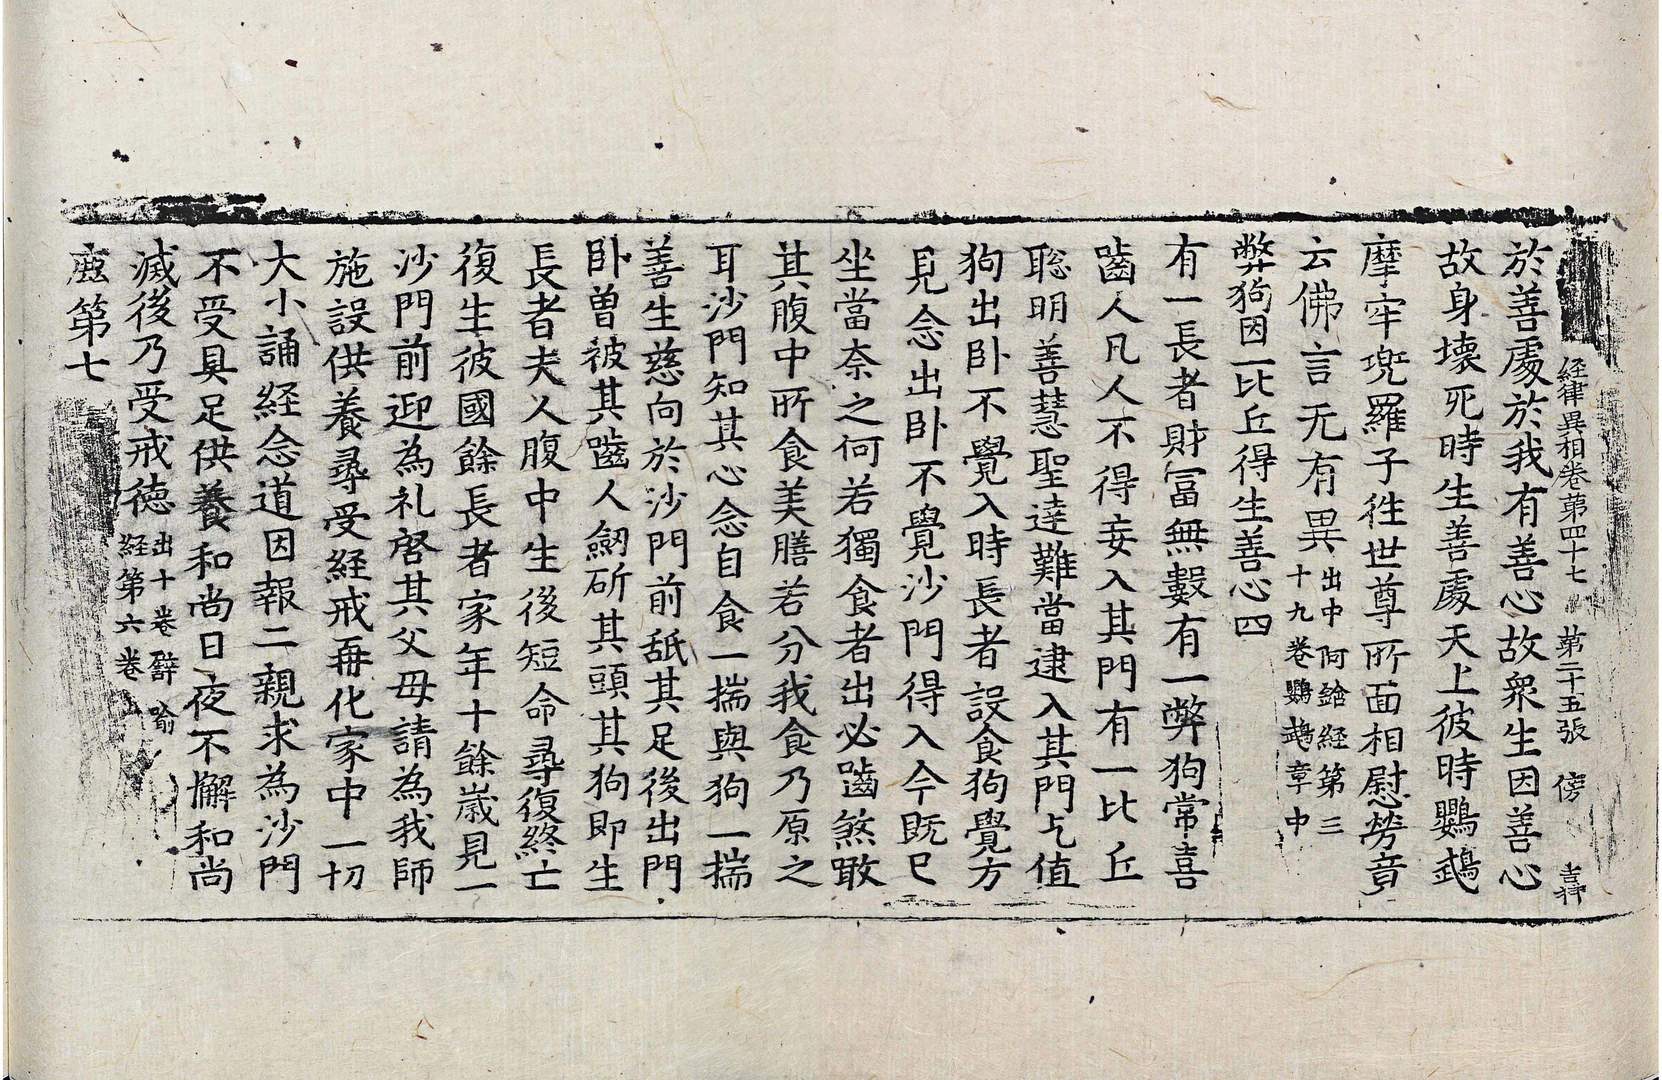 経律異相卷第四十七 第二十五張 傍 吉祥
於善處於我有善心故衆生因善心
故身壞死時生善處天上彼時鸚鵡
摩牢兜羅子往世尊所面相慰勞竟
云佛言无有異出中阿鋡経第三十九卷鸚鵡章中
弊狗因一比丘得生善心四
有一長者財冨無數有一弊狗常喜
嚙人凡人不得妄入其門有一比丘
聡明善慧聖達難當逮入其門乞值
狗出卧不覺入時長者設食狗覺方
見念出卧不覺沙門得入今既已
坐當奈之何若獨食者出必嚙煞噉
其腹中所食美膳若分我食乃原之
耳沙門知其心念自食一揣與狗一揣
善生慈向於沙門前舐其足後出門
卧曽被其嚙人劒斫其頭其狗即生
長者夫人腹中生後短命尋復終亡
復生彼國餘長者家年十餘歳見一
沙門前迎為礼啓其父母請為我師
施設供養尋受経戒冊化家中一切
大小誦経念道因報二親求為沙門
不受具足供養和尚日夜不懈和尚
滅後乃受戒徳出十卷譬喻経第六卷
第七